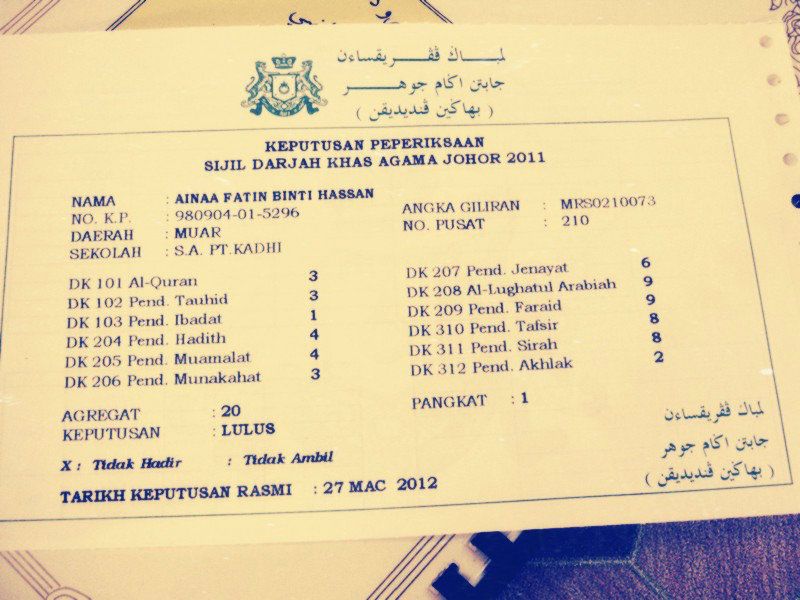 لمباݢ ڤڤريقساءن
جابتن اݢام جوهر
( بهاݢين ڤنديديقن )
KEPUTUSAN PEPERIKSAAN
SIJIL DARJAH KHAS AGAMA JOHOR 2011
NAMA : AINAA FATIN BINTI HASSAN
NO. K.P. : 980904-01-5296
DAERAH : MUAR
SEKOLAH : S.A. PT.KADHI
ANGKA GILIRAN : MRS0210073
NO. PUSAT : 210
DK 101 Al-Quran 3
DK 102 Pend. Tauhid 3
DK 103 Pend. Ibadat 1
DK 204 Pend. Hadith 4
DK 205 Pend. Muamalat 4
DK 206 Pend. Munakahat 3
DK 207 Pend. Jenayat 6
DK 208 Al-Lughatul Arabiah 9
DK 209 Pend. Faraid 9
DK 310 Pend. Tafsir 8
DK 311 Pend. Sirah 8
DK 312 Pend. Akhlak 2
AGREGAT : 20
KEPUTUSAN : LULUS
PANGKAT : 1
X : Tidak Hadir : Tidak Ambil
TARIKH KEPUTUSAN RASMI : 27 MAC 2012
لمباݢ ڤڤريقساءن
جابتن اݢام جوهر
( بهاݢين ڤنديديقن )